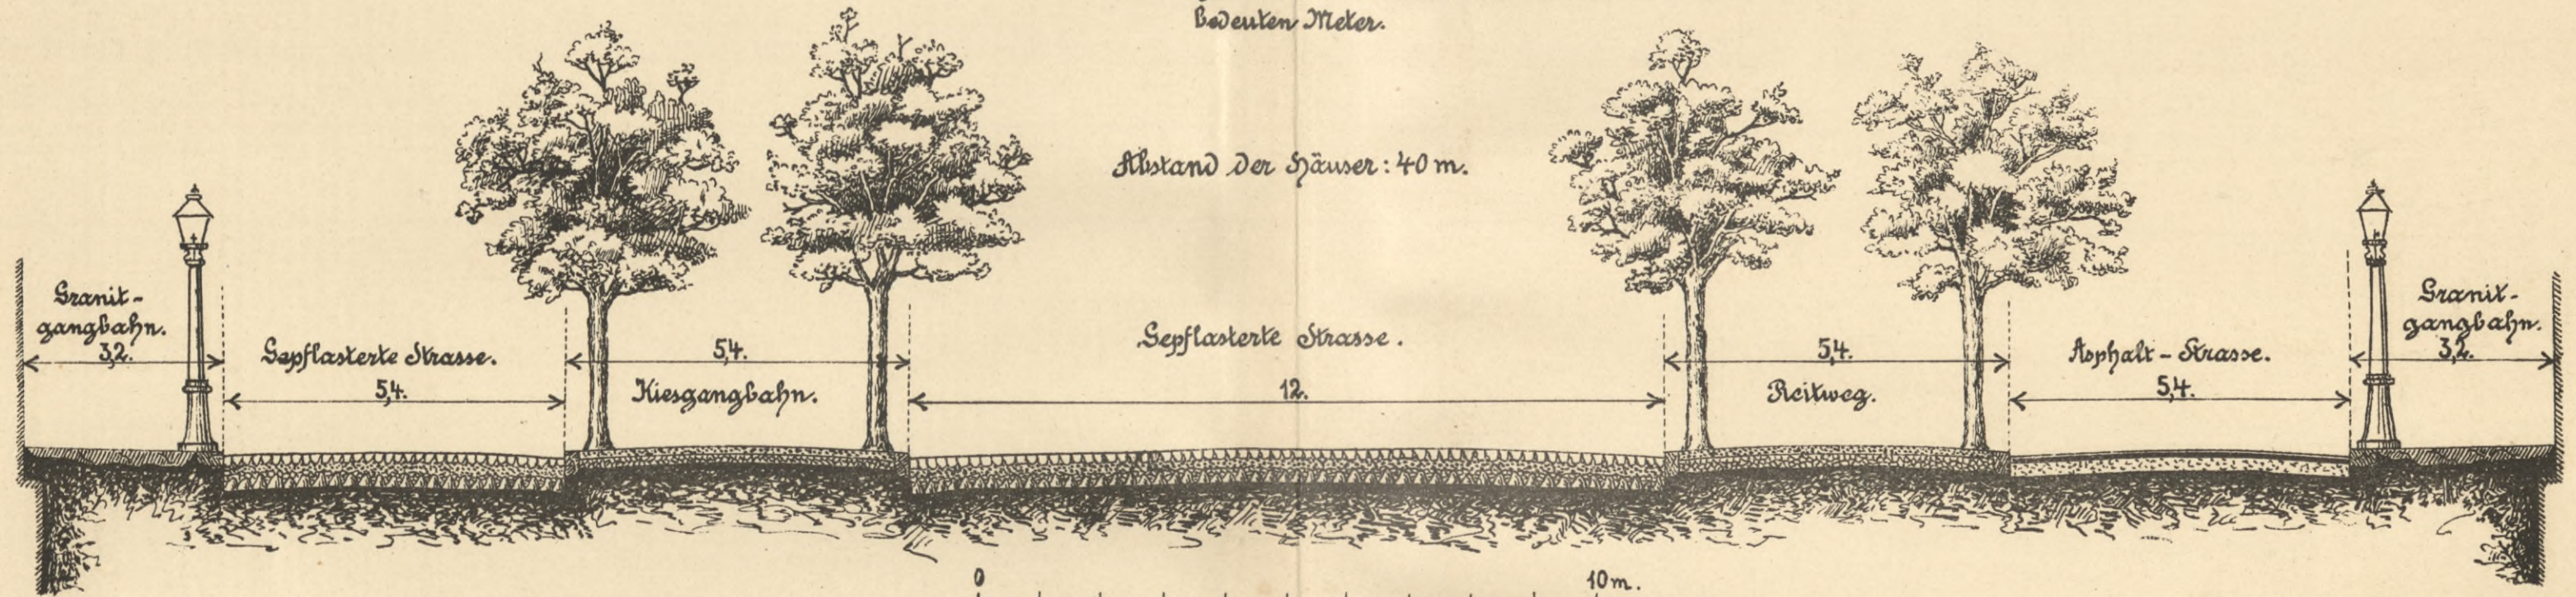 bedeuten Meter.
Abstand der Häuser: 40 m.
Granit-
gangbahn.
3,2.
Gepflasterte Strasse.
5,4.
5,4.
Kiesgangbahn.
Gepflasterte Strasse.
12.
5,4.
Reitweg.
Asphalt-Strasse.
5,4.
Granit-
gangbahn.
3,2.
0 10 m.